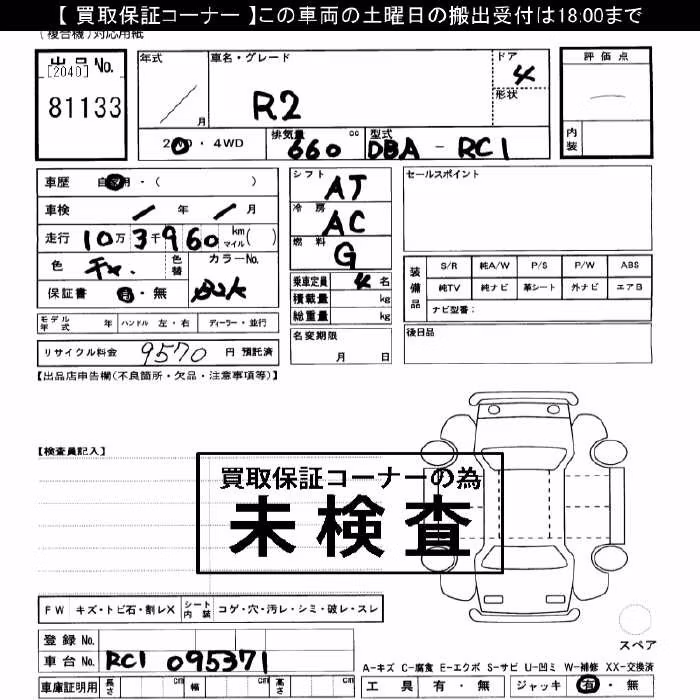 【 買取保証コーナー 】この車両の土曜日の搬出受付は18:00まで
(複合機)対応用紙
出品 No.
[2040]
81133
年式
月
車名・グレード
R2
ドア
4
形状
評価点
内装
2WD・4WD
排気量 660 cc
型式 DBA - RC1
車歴 自家用・( )
車検 / 年 / 月
走行 10万3千960 km マイル( )
色
色替
カラーNo.
保証書 有・無
シフト AT
冷房 AC
燃料 G
乗車定員 4 名
積載量 kg
総重量 kg
セールスポイント
装備品
S/R 純A/W P/S P/W ABS
純TV 純ナビ 革シート 外ナビ エアB
ナビ型番:
モデル年式 年 ハンドル 左・右 ディーラー・並行
名変期限
月 日
後日品
リサイクル料金 9570 円 預託済
【出品店申告欄(不良箇所・欠品・注意事項等)】
【検査員記入】
買取保証コーナーの為
未検査
FW キズ・トビ石・割レX シート内装 コゲ・穴・汚レ・シミ・破レ・スレ
登録 No.
車台 No. RC1 095371
スペア
A-キズ C-腐食 E-エクボ S-サビ U-凹ミ W-補修 XX-交換済
車庫証明用 長さ cm 幅 cm 高さ cm
工具 有・無 ジャッキ 有・無